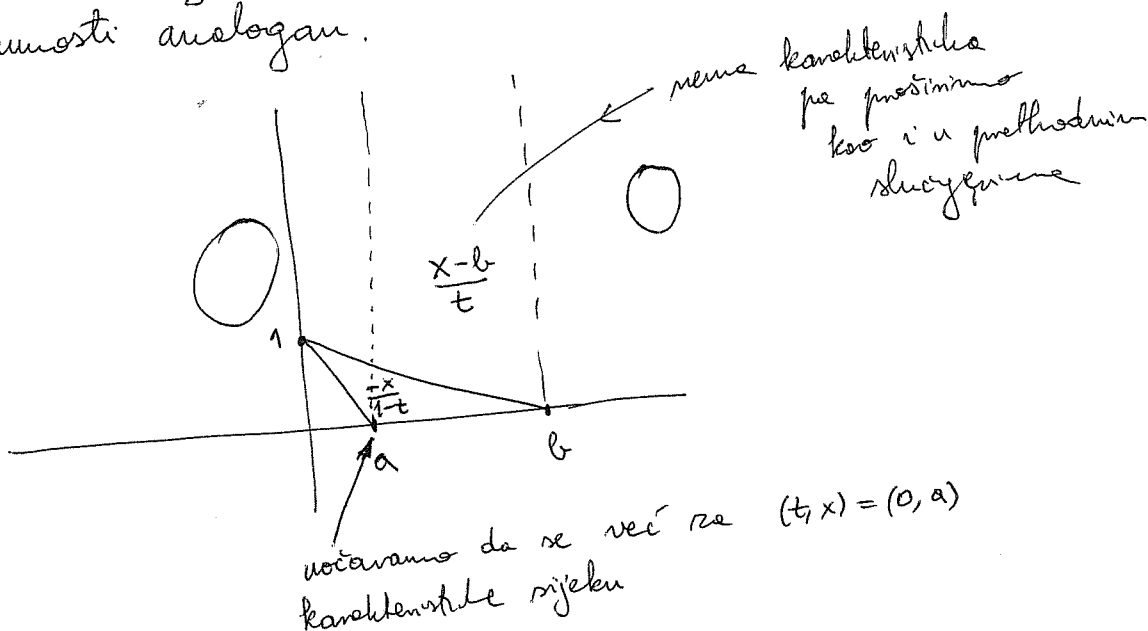 umosti analogan.
nema karakteristika
pa proširimo
kao i u prethodnim
slučajevima
0
0
x-b
t
1
-x
1-t
a
b
uočavamo da se već za (t,x) = (0,a)
karakteristike sijeku